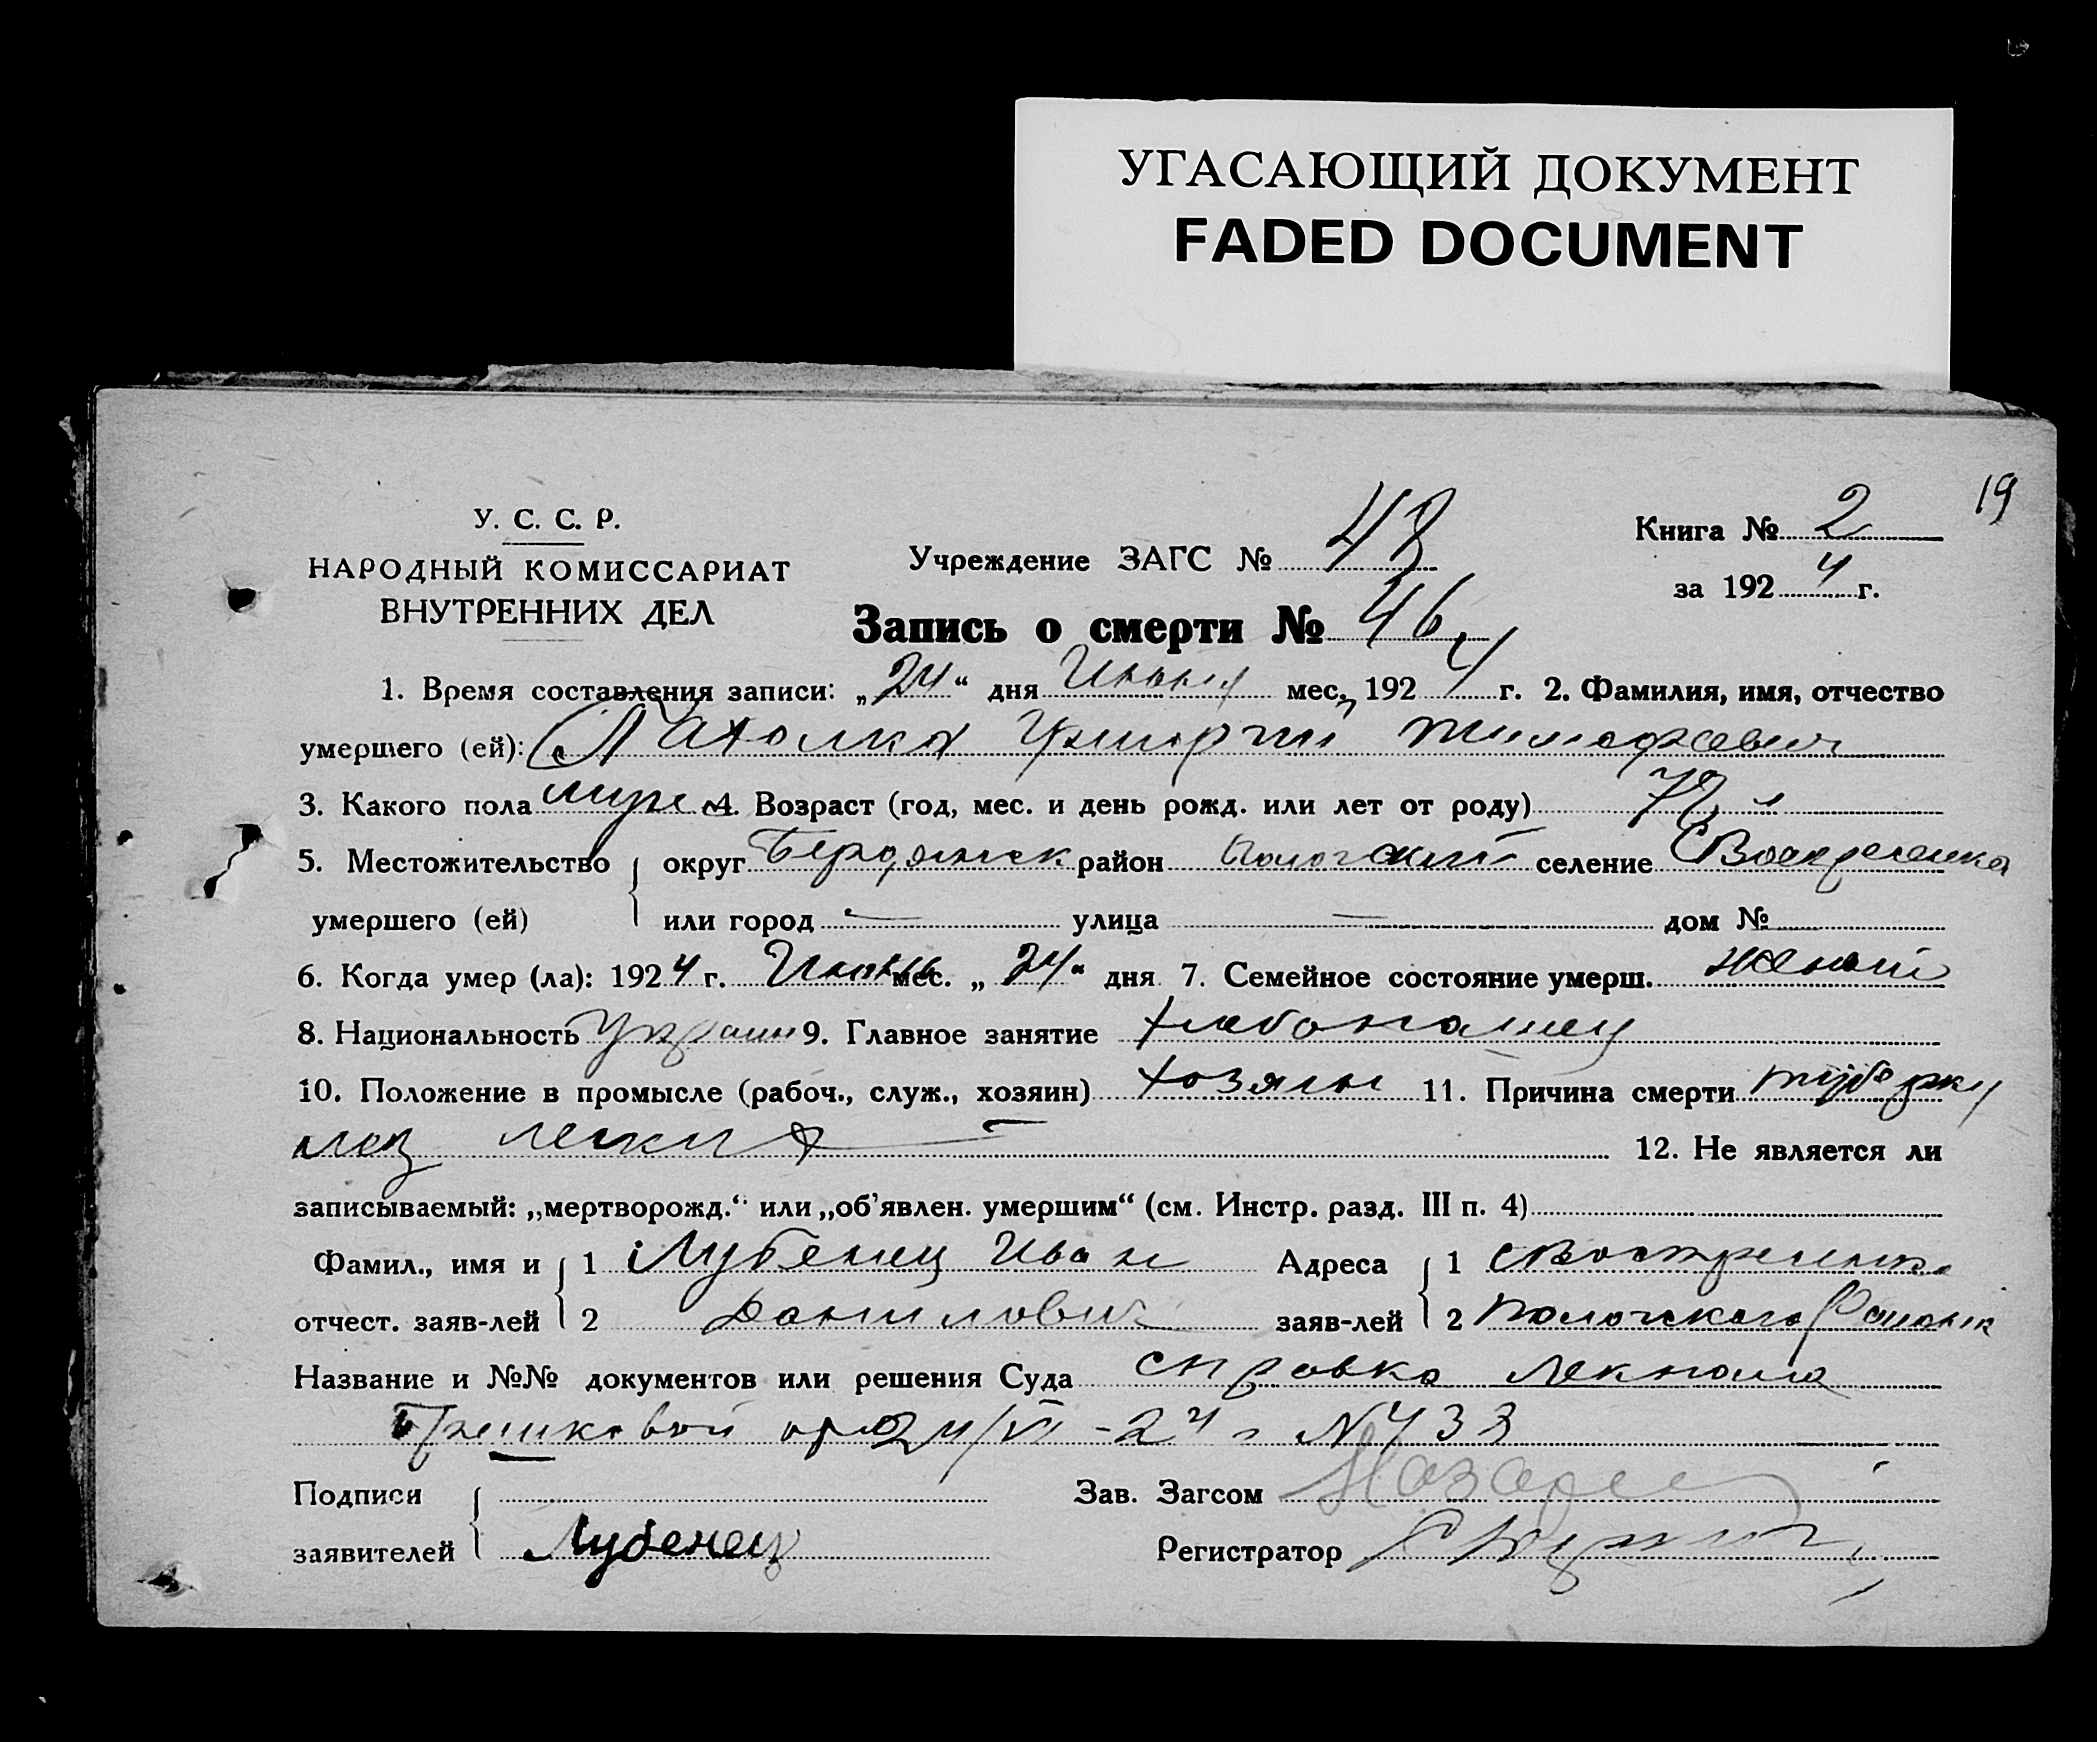 УГАСАЮЩИЙ ДОКУМЕНТ
FADED DOCUMENT
19
У. С. С. Р.
НАРОДНЫЙ КОМИССАРИАТ
ВНУТРЕННИХ ДЕЛ
Книга № 2
за 1924 г.
Учреждение ЗАГС № 48
Запись о смерти № 46
1. Время составления записи: „24“ дня Июня мес. 1924 г. 2. Фамилия, имя, отчество
умершего (ей): Григорий Тимофеевич
3. Какого пола муж 4. Возраст (год, мес. и день рожд. или лет от роду) 78 л
5. Местожительство округ Бердянск район Пологский селение С Воскресенка
умершего (ей) или город — улица — дом №
6. Когда умер (ла): 1924 г. Июнь мес. „24“ дня 7. Семейное состояние умерш. женат
8. Национальность Украин 9. Главное занятие хлебопашец
10. Положение в промысле (рабоч., служ., хозяин) хозяин 11. Причина смерти туберку
лез легких 12. Не является ли
записываемый: „мертворожд.“ или „об'явлен. умершим“ (см. Инстр. разд. III п. 4)
Фамил., имя и 1 Лубенец Иван Адреса 1 с Воскресенка
отчест. заяв-лей 2 Данилович заяв-лей 2 Пологского Района
Название и №№ документов или решения Суда справка лекпома
от 24/VI-24 г N 433
Подписи Зав. Загсом
заявителей Лубенец Регистратор